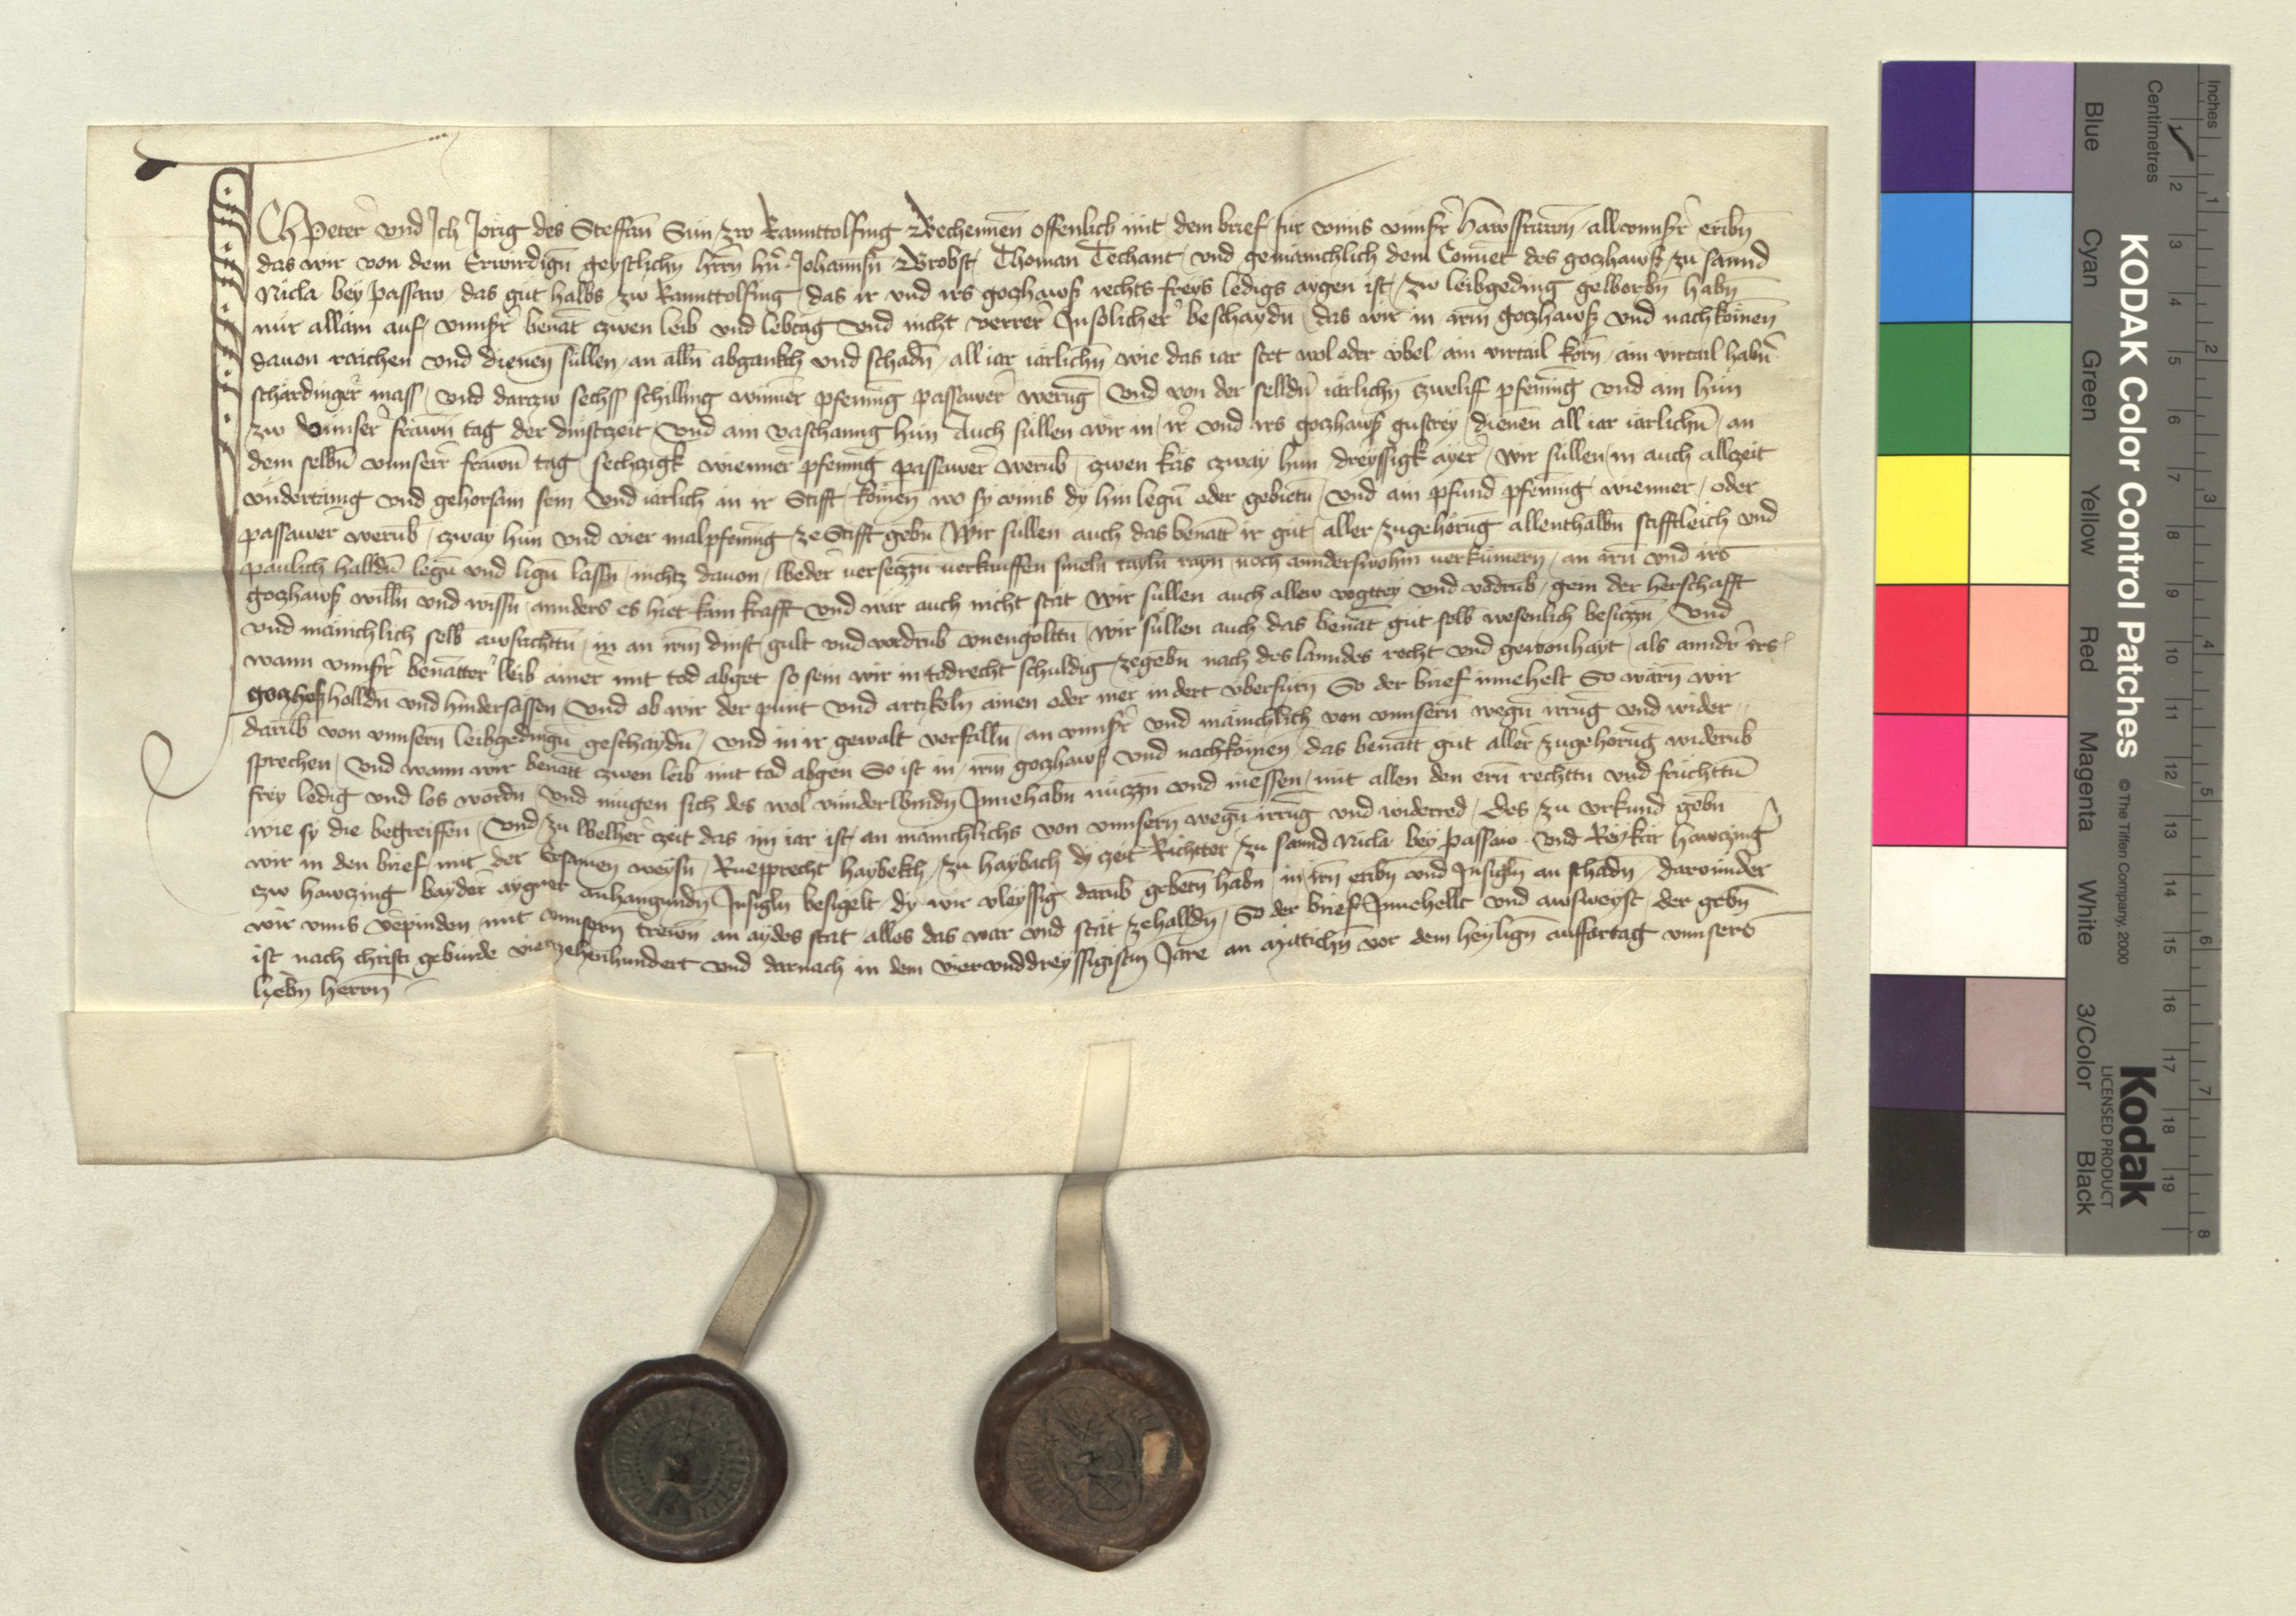 ICh Peter vnd Ich Jorig des Steffan Sun zw Ranttolfing Bechennen offenlich mit dem brief fur vnns vnnsr hawsfrawn all vnnsr eribn
das wir von dem Erwirdign geystlichn hrrn hrn Johannsn Brobst Thoman Techant vnd gemainchlich dem Conuet des goczhaws zu sannd
Nicla bey passaw das gut halbs zw Ranttolfing das ir vnd irs goczhaws rechts freys ledigs aygen ist zw leibgeding gelborbn habn
nur allain auf vnnsr benat czwen leib vnd lebtag vnd nicht verrer In solicher beschaydn das wir in irm goczhaws vnd nachkomen
dauon raichen vnd dienen sullen an alln abgankch vnd schadn all iar iarlichn wie das iar stet wol oder vbel ain virtail korn ain virtail habn
schardinger mass vnd darczw sechss schilling winner pfening passawer werug vnd von der selldn iarlichn zweliff pfening vnd ain hun
zw vnnser frawn tag der dinstzeit vnd ain vaschanng hun Auch sullen wir in ir vnd irs goczhaws gustrey dienen all iar iarlichn an
dem selbn vnnserr frawn tag sechzigk wienner pfening passawer werub czwen kas czway hun dreyssigk ayer wir sullen in auch allczeit
vndertanig vnd gehorsam sein vnd iarlich in ir Stifft komen wo sy vnns dy hin legn oder gebietn vnd ain pfund pfening wienner oder
passawer werub czway hun vnd vier malpfening ze Stifft gebn Wir sullen auch das benatt ir gut aller zugehorug allenthalbn stifftleich vnd
paulich halldn legn vnd lign lassn nichtz dauon weder uersetzn uerkauffen smeln tayln rayn noch anderswohin uerkumern an irn vnd irs
goczhaws willn vnd wissn annders es hiet kain krafft vnd war auch nicht stat Wir sullen auch allew vogttey vnd vodrub gein der herschafft
vnd mainchlich selb awsrichttn in an irm dinst gult vnd vordrub vnengolttn Wir sullen auch das benat gut selb wesenlich besiczn vnd
wann vnnsr benatter leib ainer mit tod abget so sein wir in todrecht schuldig zegebn nach des lanndes recht vnd gewonhayt als anndr irs
goczhs holldn vnd hindersassen vnd ob wir der punt vnd artikeln ainen oder mer in dert vberfurn So der brief innehelt So warn wir
darub von vnnsern leibgedingn geschaydn vnd in ir gewalt verfalln an vnnsr vnd mainchlich von vnnsern wegn irrug vnd wider
sprechen vnd wann wir benatt czwen leib mit tod abgen So ist in irm goczhaws vnd nachkomen das benatt gut aller zugehorug widerub
frey ledig vnd los wordn vnd mugen sich des wol vnnderwindn Innehabn nuczzn vnd niessen mit allen den ern rechttn vnd fruchttn
wie sy die begreiffen vnd zu welher czeit das im iar ist an mainchlichs von vnnsern wegn irrug vnd widerred Des zu vrkund gebn
wir in den brief mit der Ersamen weysn Ruepprecht haybekch zu haybach dy zeit Richtter zu sannd Nicla bey passaw vnd Reykar hawczing
czw hawczing bayder aygner anhangundn Insigln besigelt dy wir vleyssig darub gebetn habn in irn eribn vnd Insigln an schadn darvnnder
wir vnns verpinden mit vnnsern trewn an aydes stat alles das war vnd stat zehalldn So der brief Innehellt vnd awsweyst der gebn
ist nach christi geburde vierzehenhundert vnd darnach in dem viervnddreyssigistn Jare an Mittichn vor dem heylign auffartag vnnsers
liebn herrn
Inches
Centimetres
KODAK Color Control Patches
© The Tiffen Company, 2000
Kodak
LICENSED PRODUCT
Blue
Cyan
Green
Yellow
Red
Magenta
White
3/Color
Black